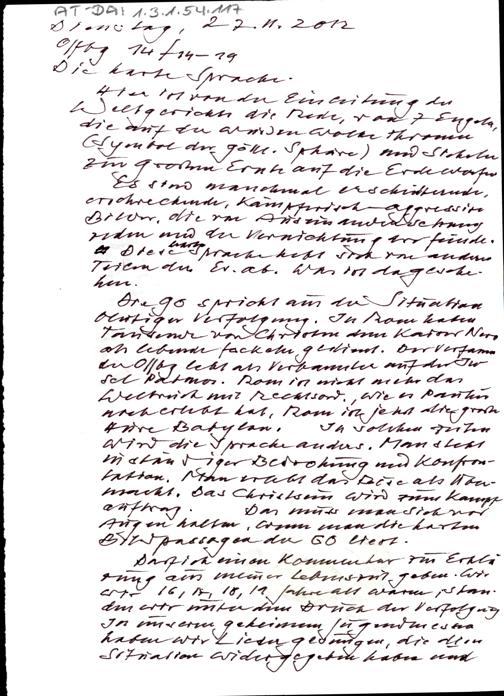 AT-DA: 1.3.1.54.117
Dienstag, 27.11.2012
Offbg 14/14-19
Die harte Sprache.
Hier ist von der Einleitung des
Weltgerichts die Rede, von 7 Engeln,
die auf der weißen Wolke thronen
(Symbol der göttl. Sphäre) und Sicheln
zur großen Ernte auf die Erde werfen
Es sind manchmal erschütternde,
erschreckende, kämpferisch-aggressive
Bilder, die von Auseinandersetzung
reden und der Vernichtung der Feinde.
Diese harte Sprache hebt sich von anderen
Teilen des Ev. ab. Was ist da gesche-
hen.
Die GO spricht aus der Situation
blutiger Verfolgung. In Rom haben
Tausende von Christen dem Kaiser Nero
als lebende Fackeln gedient. Der Verfasser
der Offbg lebt als Verbannter auf der In-
sel Patmos. Rom ist nicht mehr das
Weltreich mit Rechtsord., wie es Paulus
noch erlebt hat, Rom ist jetzt die große
Hure Babylon. In solchen Zeiten
wird die Sprache anders. Man steht
in ständiger Bedrohung und Konfron-
tation. Man erlebt das Böse als Über-
macht. Das Christsein wird zum Kampf
auftrag. Das muss man sich vor
Augen halten, wenn man die harten
Bildpassagen der GO liest.
Darf ich einen Kommentar zur Erklä-
rung aus meiner Lebenszeit geben. Wie
wir 16, 17, 18, 19 Jahre alt waren, stan-
den wir unter dem Druck der Verfolgung
In unseren geheimen Jugendmessen
haben wir Lieder gesungen, die diese
Situation widergegeben haben und